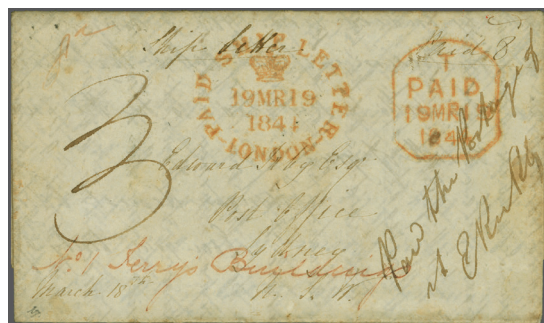 Ship letter
Paid 8
PAID SHIP LETTER LONDON
19MR19
1841
T
PAID
19MR19
184
3
Edward
Post Office
Sydney
N. S. W.
No. 1 Terry's Buildings
March 18th
Paid the Postage of
at